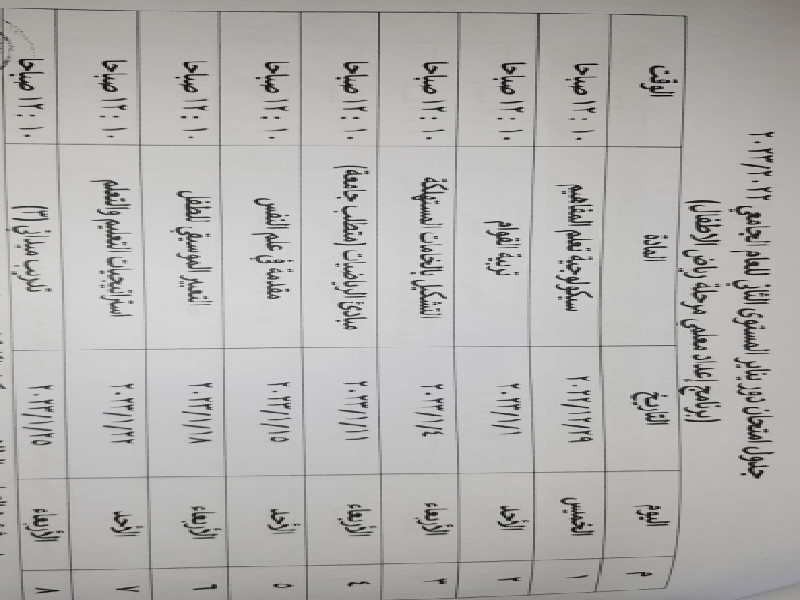 جدول امتحان دور يناير المستوى الثاني للعام الجامعي ٢٠٢٣/٢٠٢٢
(برنامج إعداد معلمى مرحلة رياض الاطفال)
م اليوم التاريخ المادة الوقت
١ الخميس ٢٠٢٢/١٢/٢٩ سيكولوجية تعلم المفاهيم ١٠ : ١٢ صباحا
٢ الأحد ٢٠٢٣/١/١ تربية القوام ١٠ : ١٢ صباحا
٣ الأربعاء ٢٠٢٣/١/٤ التشكيل بالخامات المستهلكة ١٠ : ١٢ صباحا
٤ الأربعاء ٢٠٢٣/١/١١ مبادئ الرياضيات (متطلب جامعة) ١٠ : ١٢ صباحا
٥ الأحد ٢٠٢٣/١/١٥ مقدمة في علم النفس ١٠ : ١٢ صباحا
٦ الأربعاء ٢٠٢٣/١/١٨ التعبير الموسيقي للطفل ١٠ : ١٢ صباحا
٧ الأحد ٢٠٢٣/١/٢٢ استراتيجيات التعليم والتعلم ١٠ : ١٢ صباحا
٨ الأربعاء ٢٠٢٣/١/٢٥ تدريب ميداني (٣) ١٠ : ١٢ صباحا